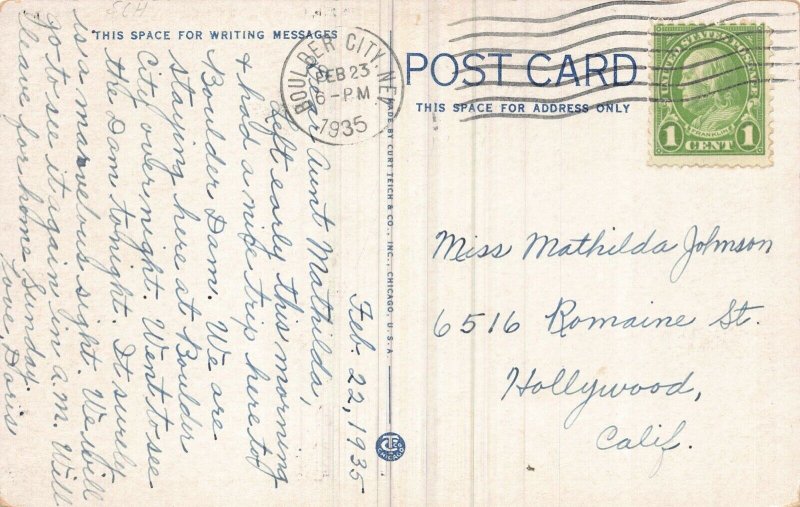 THIS SPACE FOR WRITING MESSAGES
Feb. 22, 1935
Dear Aunt Mathilda,
Left early this morning
& had a nice trip here to
Boulder Dam. We are
staying here at Boulder
City overnight. Went to see
the Dam tonight. It surely
is a marvelous sight. We will
go to see it again in a.m. Will
leave for home Sunday.
Love, Doris
MADE BY CURT TEICH & CO., INC., CHICAGO, U.S.A.
CHICAGO
BOULDER CITY, NEV.
FEB 23
6-PM
1935
POST CARD
THIS SPACE FOR ADDRESS ONLY
UNITED STATES POSTAGE
FRANKLIN
1 CENT 1
Miss Mathilda Johnson
6516 Romaine St.
Hollywood,
Calif.